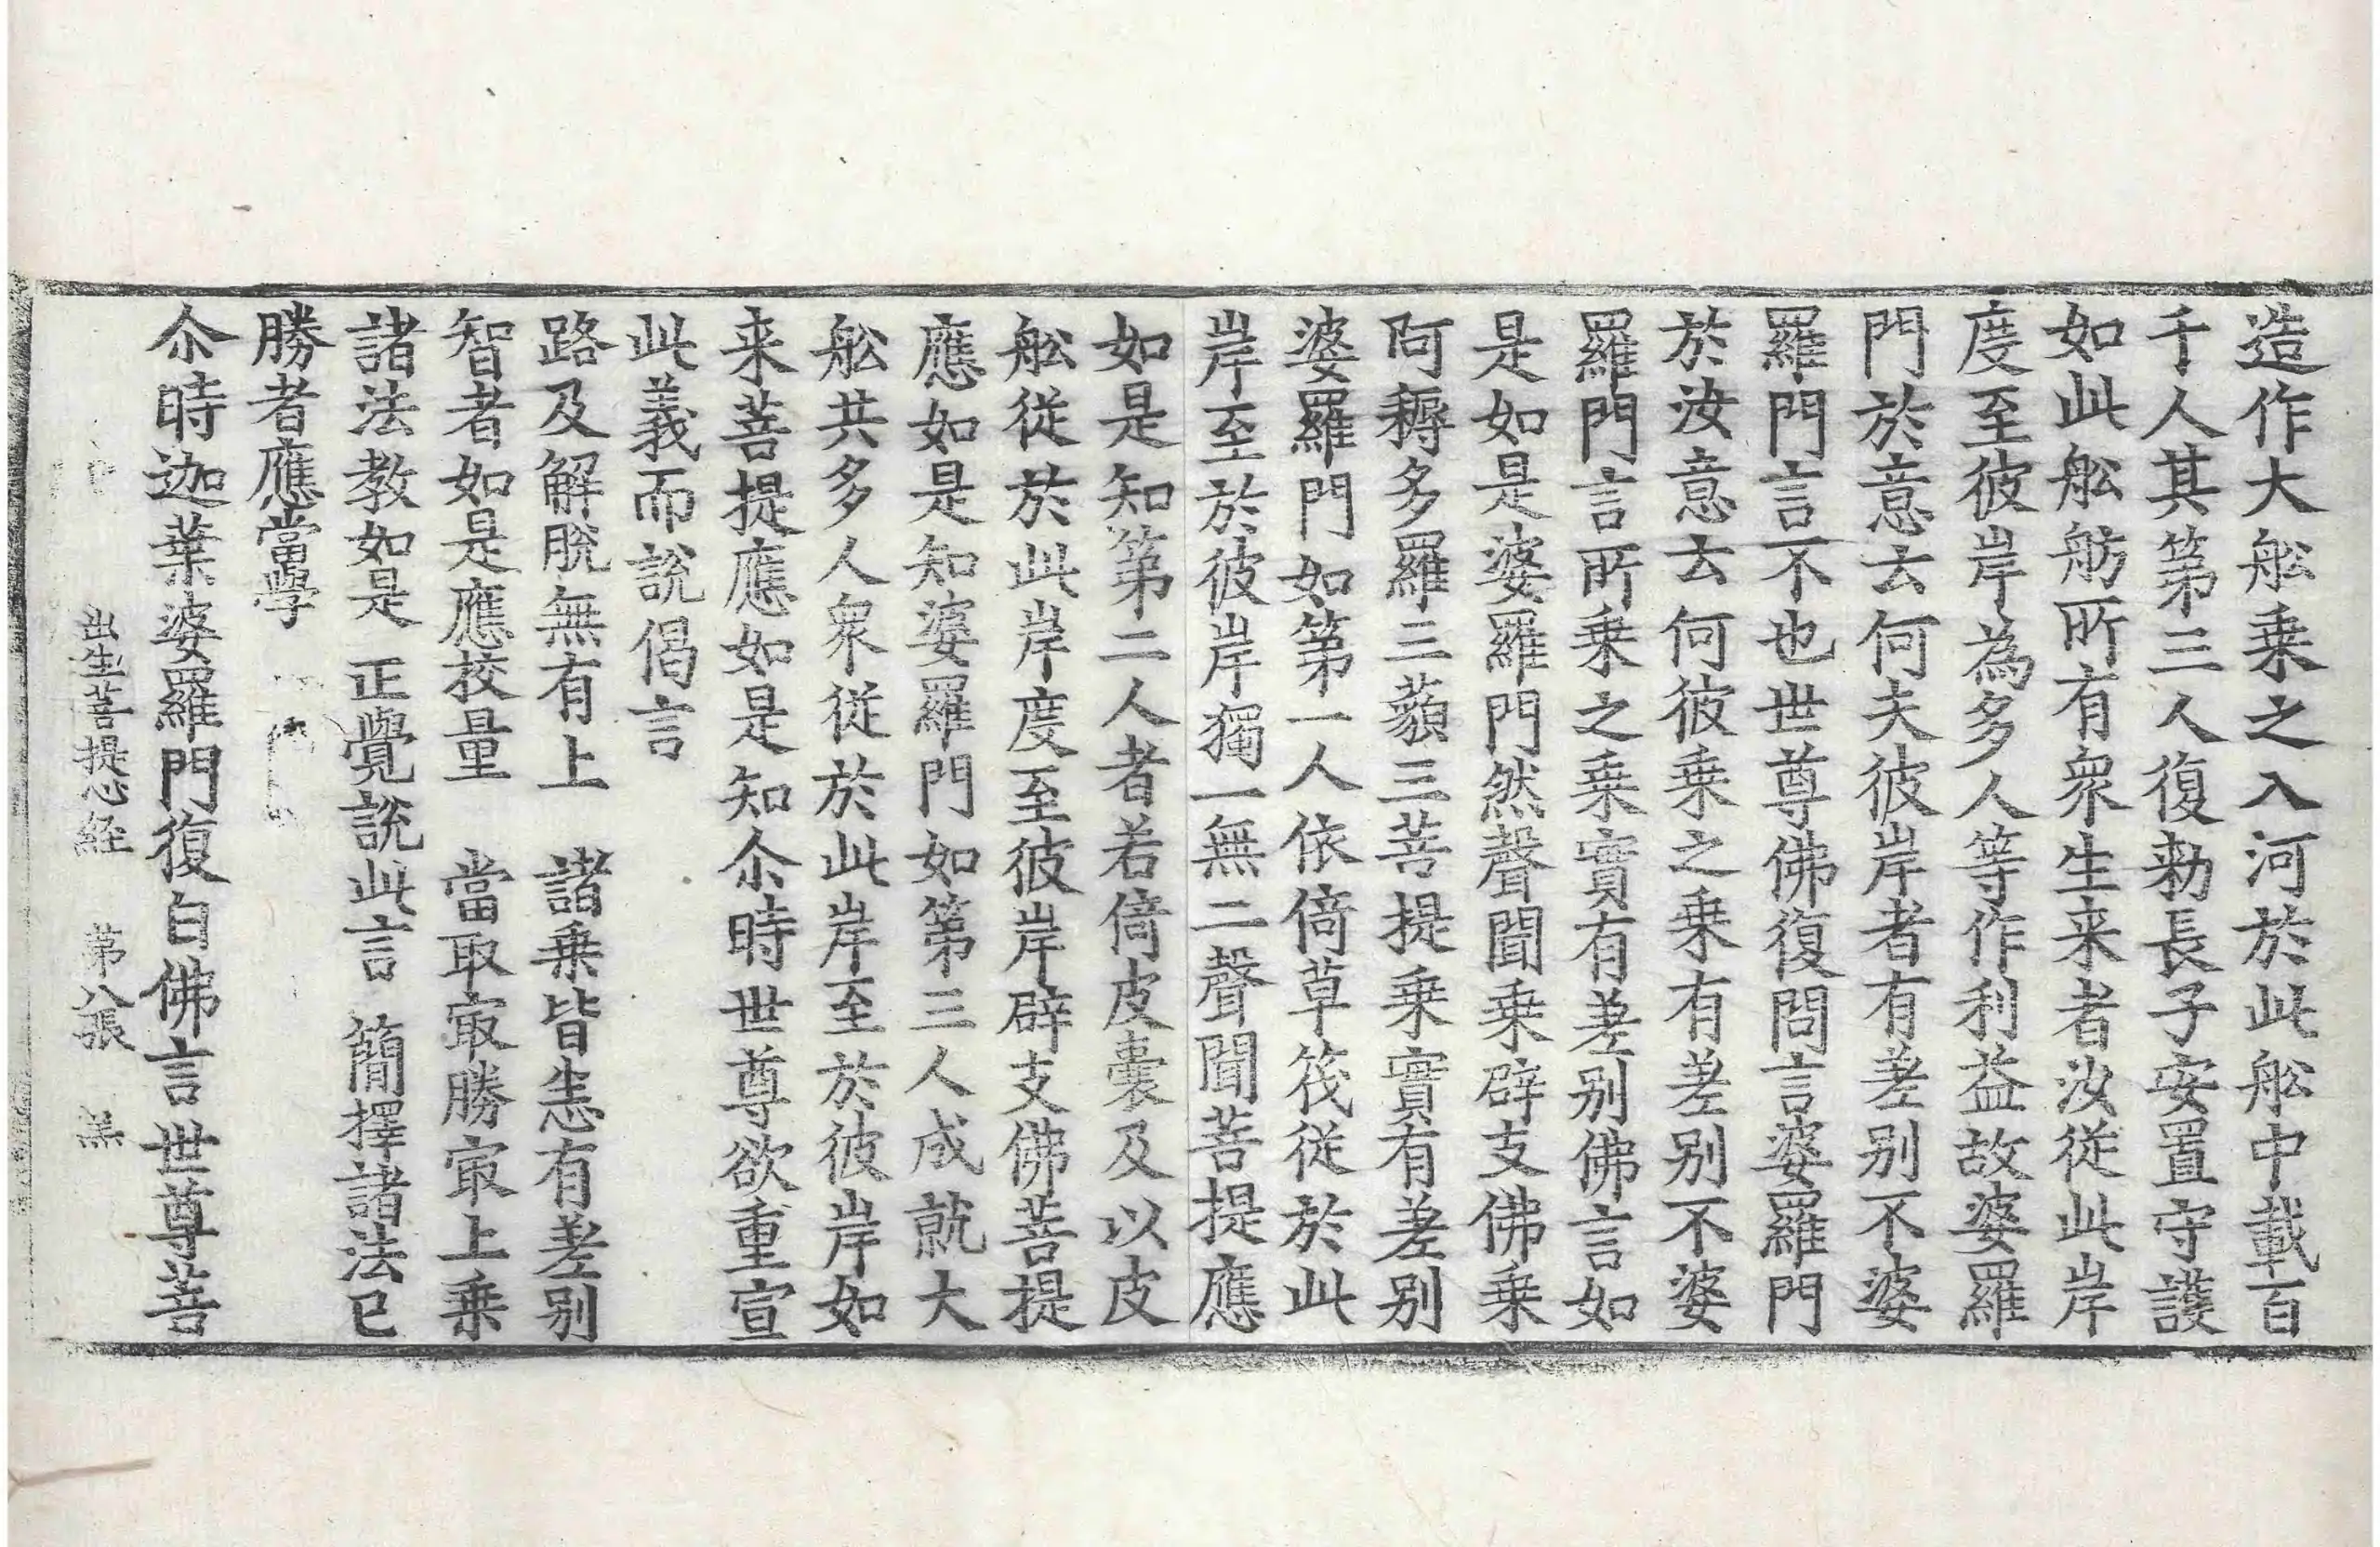 造作大舩乗之入河於此舩中載百
千人其第三人復勑長子安置守護
如此舩舫所有衆生来者汝従此岸
度至彼岸為多人等作利益故婆羅
門於意去何夫彼岸者有差别不婆
羅門言不也世尊佛復問言婆羅門
於汝意去何彼乗之乗有差别不婆
羅門言所乗之乗實有差别佛言如
是如是婆羅門然聲聞乗辟支佛乗
阿耨多羅三藐三菩提乗實有差别
婆羅門如第一人依倚草筏従於此
岸至於彼岸獨一無二聲聞菩提應
如是知第二人者若倚皮囊及以皮
舩従於此岸度至彼岸辟支佛菩提
應如是知婆羅門如第三人成就大
舩共多人衆従於此岸至於彼岸如
来菩提應如是知尒時世尊欲重宣
此義而説偈言
路及解脱無有上　諸乗皆悉有差别
智者如是應校量　當取㝡勝㝡上乗
諸法教如是　正覺説此言　簡擇諸法已
勝者應當學
尒時迦葉婆羅門復白佛言世尊菩
出生菩提心経　第八張